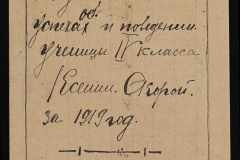 об
успехах и поведении
ученицы II класса
Есении
за 1919 год.